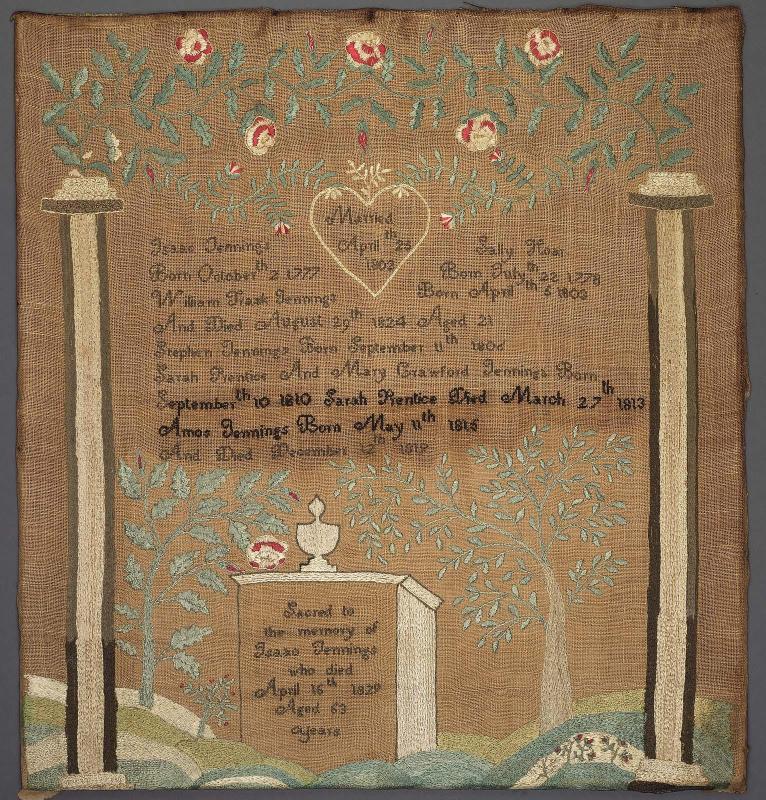 Married
April 25th
1802
Isaac Jennings
Born October 2th 1777
Sally Hoar
Born July 22th 1778
William Trask Jennings
Born April 5th 1803
And Died August 29th 1824 Aged 21
Stephen Jennings Born September 11th 1806
Sarah Prentice And Mary Crawford Jennings Born
September 10th 1810 Sarah Prentice Died March 27th 1813
Amos Jennings Born May 11th 1815
And Died December 12th 1819
Sacred to
the memory of
Isaac Jennings
who died
April 16th 1829
Aged 53
years